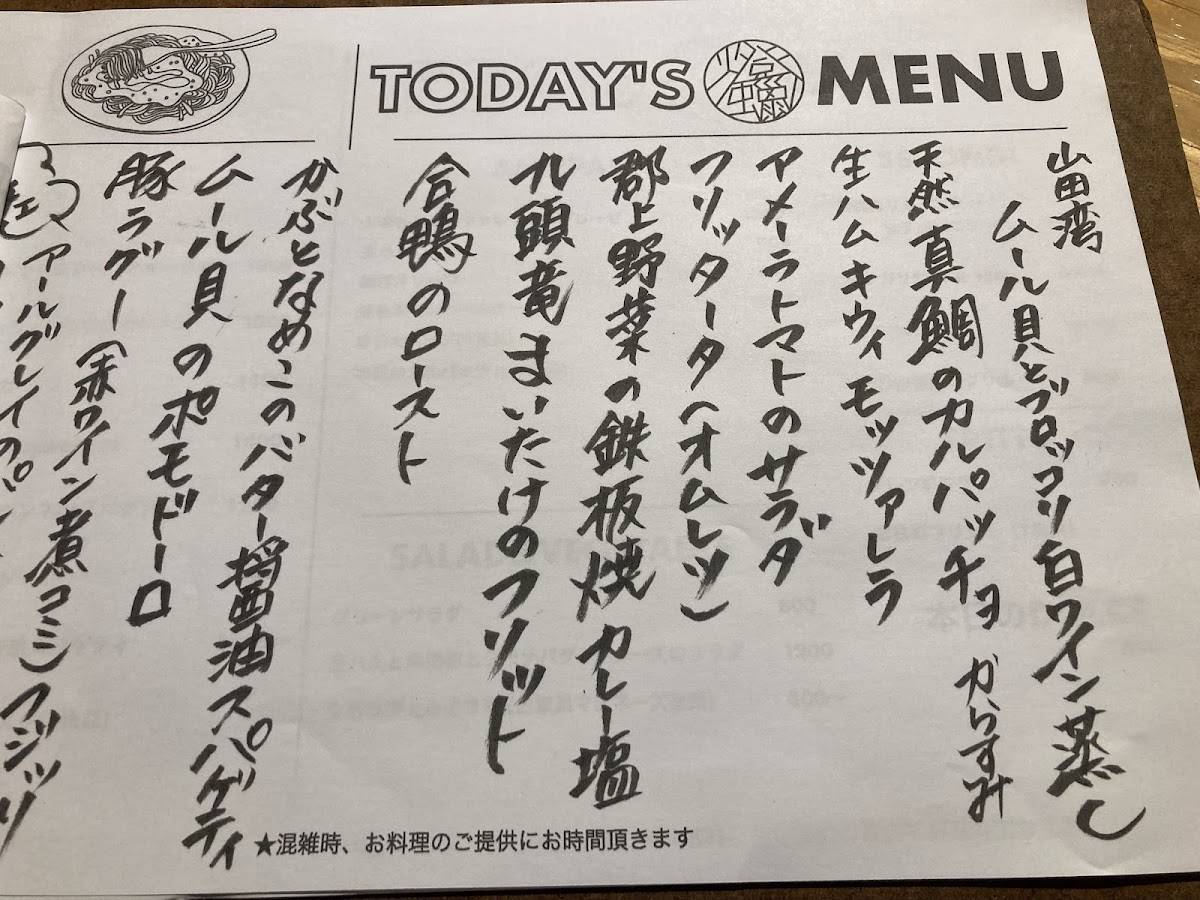 TODAY'S MENU
山田湾
ムール貝とブロッコリ白ワイン蒸し
天然真鯛のカルパッチョ からすみ
生ハムキウィモッツァレラ
アメーラトマトのサラダ
フリッタータ(オムレツ)
郡上野菜の鉄板焼 カレー塩
九頭竜まいたけのフリット
合鴨のロースト
かぶとなめこのバター醤油スパゲティ
ムール貝のポモドーロ
豚ラグー(赤ワイン煮コミ)フジッリ
アールグレイの
★混雑時、お料理のご提供にお時間頂きます